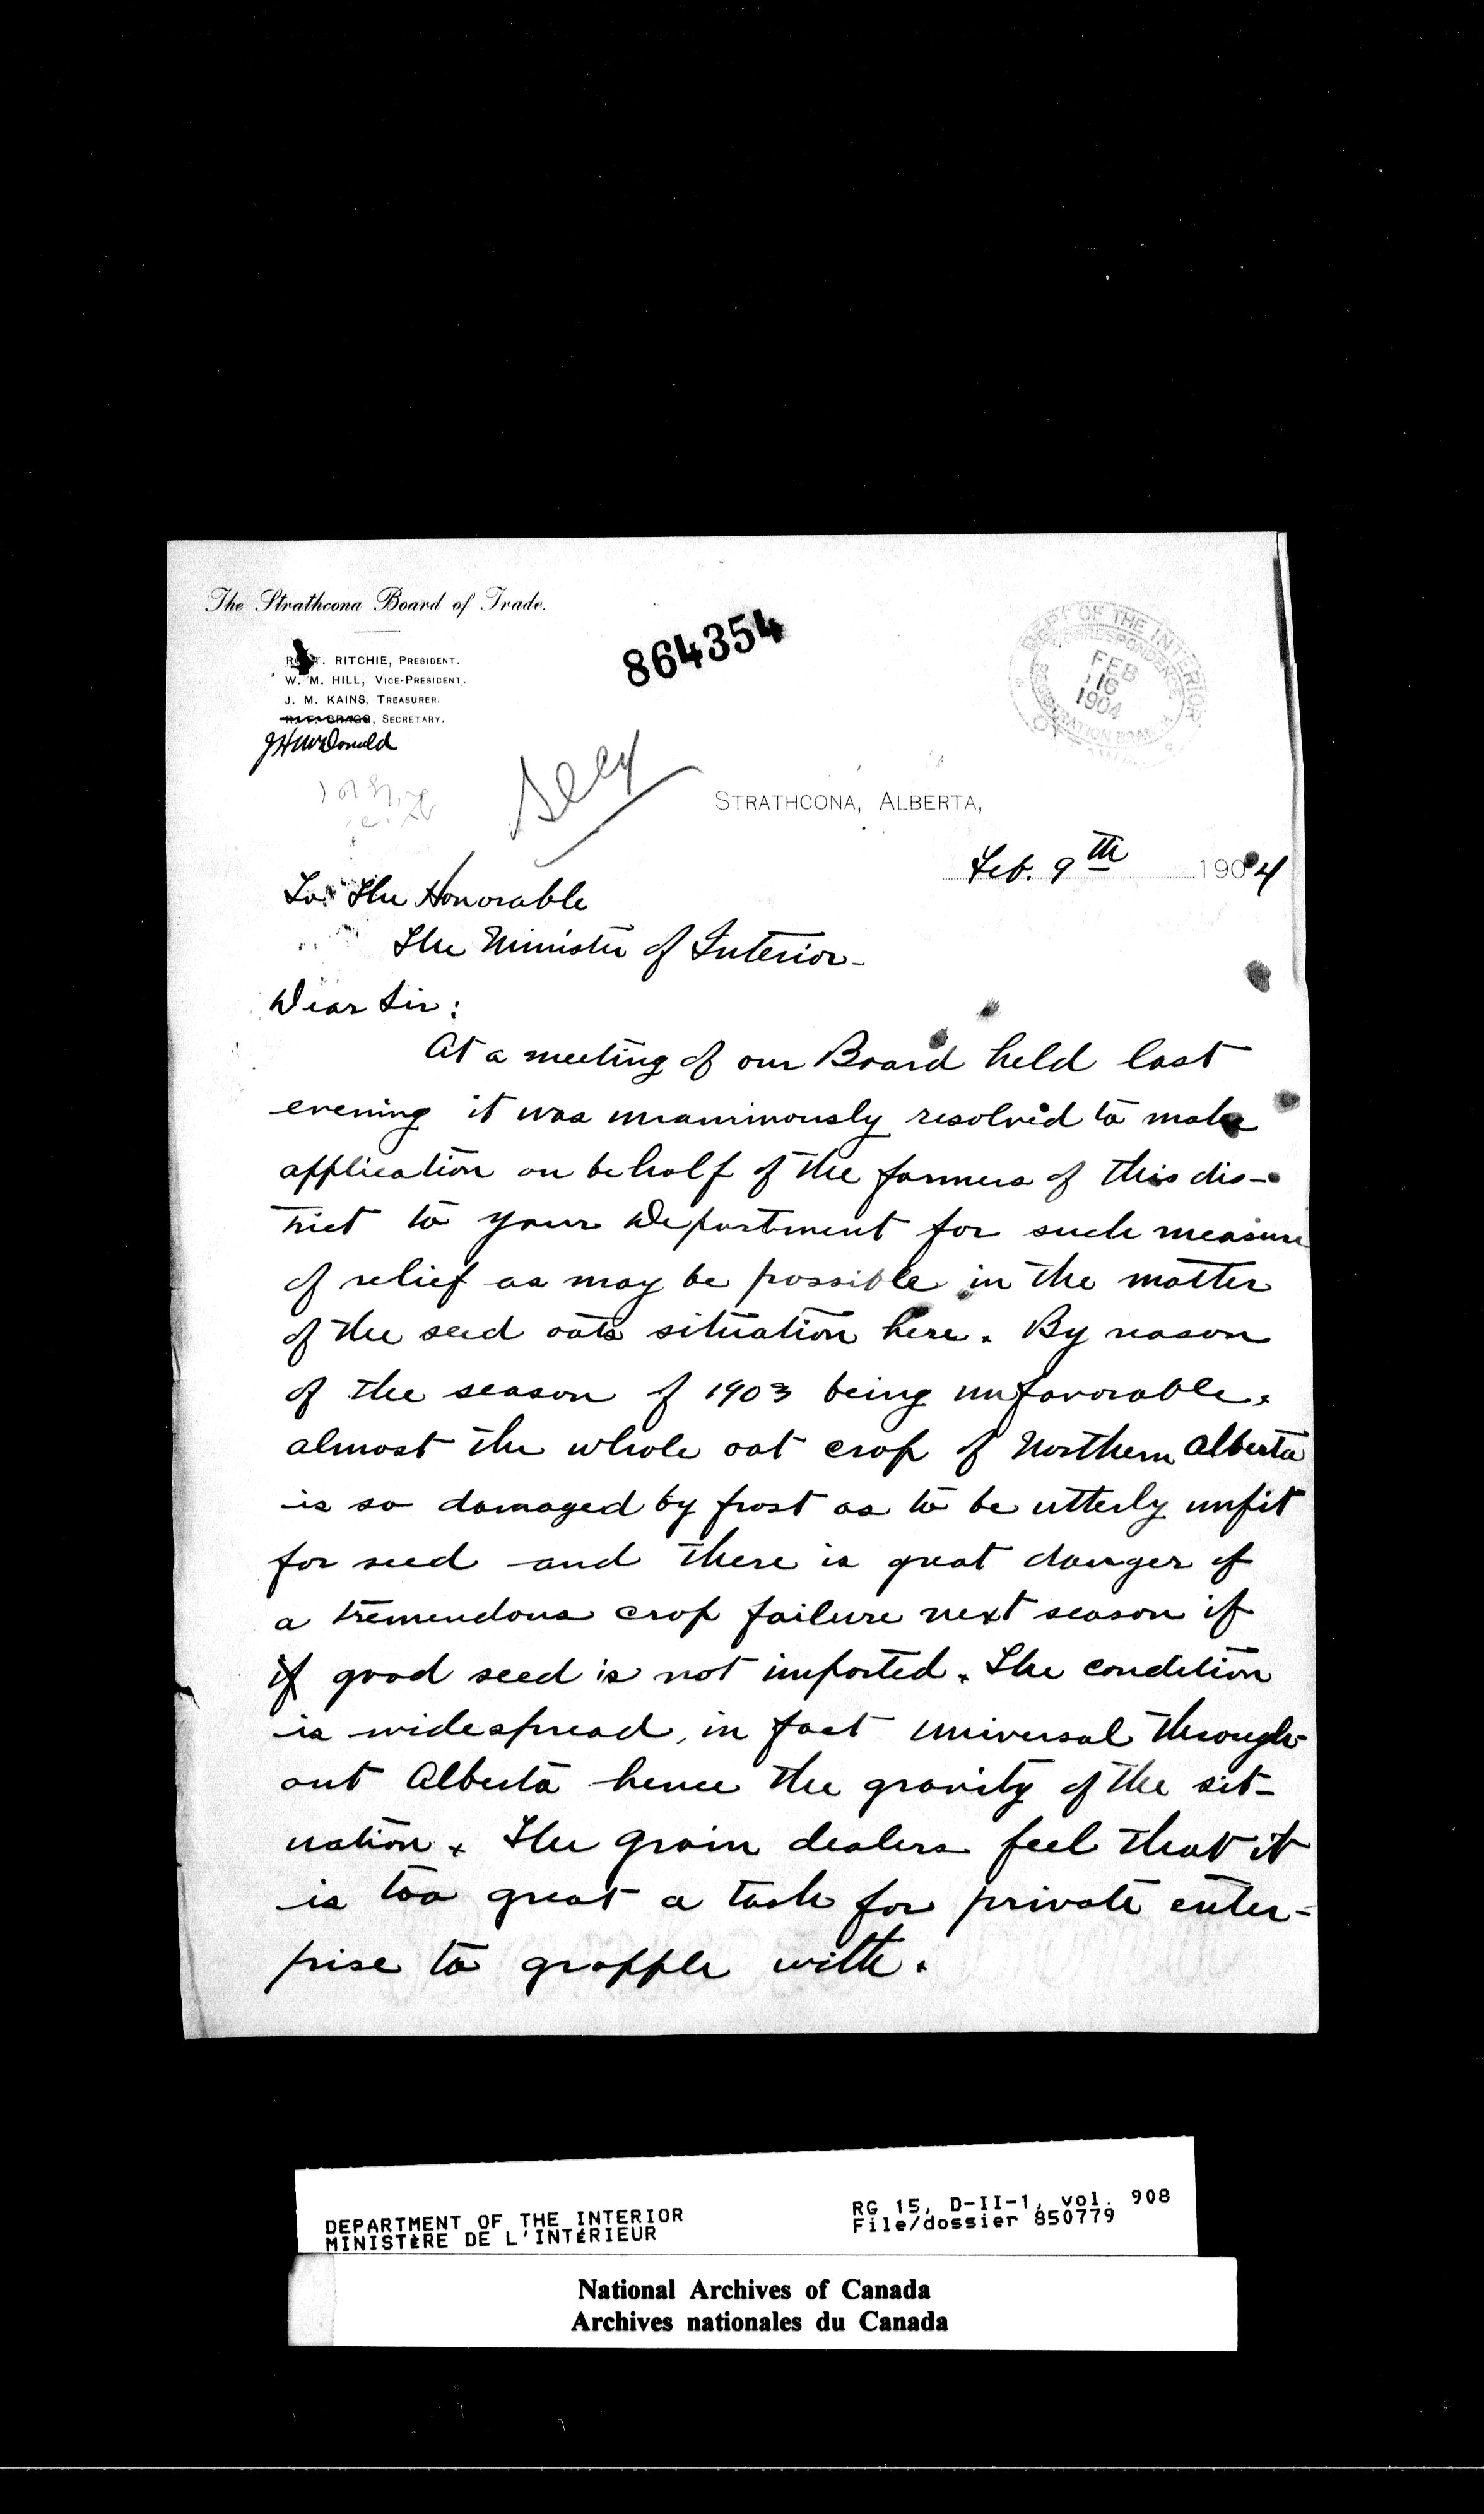 The Strathcona Board of Trade.
RITCHIE, PRESIDENT.
W. M. HILL, VICE-PRESIDENT.
J. M. KAINS, TREASURER.
SECRETARY.
J H McDonald
864354
DEPT OF THE INTERIOR
CORRESPONDENCE
FEB
16
1904
REGISTRATION BRANCH
OTTAWA
Secy
STRATHCONA, ALBERTA,
Feb. 9th 1904
To The Honorable
The Minister of Interior-
Dear Sir:
At a meeting of our Board held last
evening it was unanimously resolved to make
application on behalf of the farmers of this dis-
trict to your Department for such measure
of relief as may be possible in the matter
of the seed oats situation here. By reason
of the season of 1903 being unfavorable,
almost the whole oat crop of Northern Alberta
is so damaged by frost as to be utterly unfit
for seed and there is great danger of
a tremendous crop failure next season if
if good seed is not imported. The condition
is widespread, in fact universal through-
out Alberta hence the gravity of the sit-
uation. The grain dealers feel that it
is too great a task for private enter-
prise to grapple with.
DEPARTMENT OF THE INTERIOR
MINISTÈRE DE L'INTÉRIEUR
RG 15, D-II-1, vol. 908
File/dossier 850779
National Archives of Canada
Archives nationales du Canada